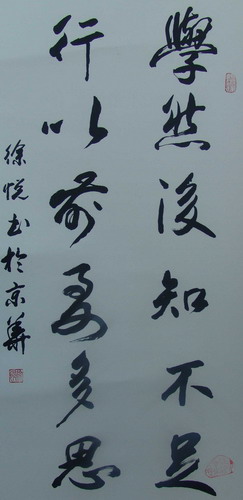 學然後知不足
行以前要多思
徐悦书於京華